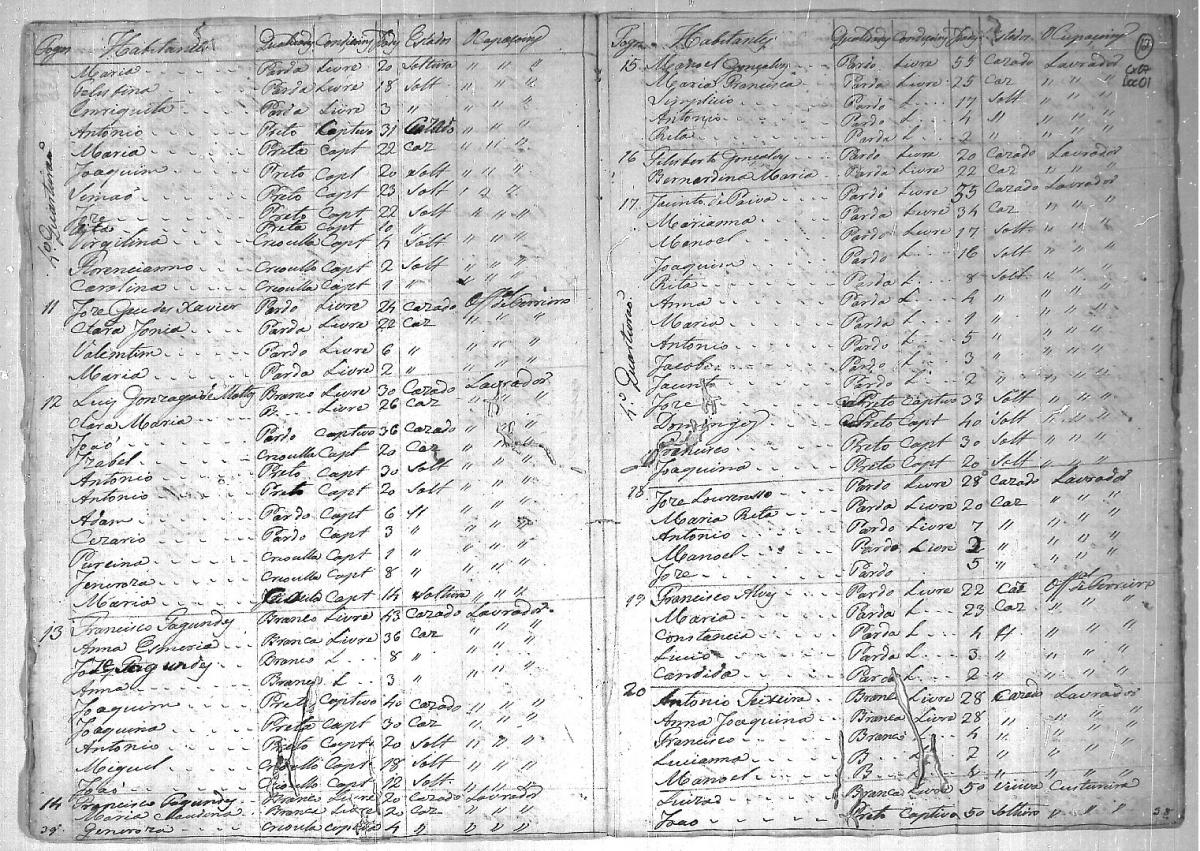 Fogos Habitantes Qualidades Condiçoins Idades Estados Ocupaçoins
Maria Parda Livre 20 Solteira " " "
Celestina Parda Livre 18 Solt " " "
Enriqueta Parda Livre 3 " " " "
Antonio Preto Captivo 31 Cazado " " "
Maria Preta Capt 22 Caz " " "
Joaquim Preto Capt 20 Solt " " "
Simaõ Preto Capt 23 Solt
Joze Preto Capt 22 Solt " " "
Rita Preta Capt 10 "
Virgilina Crioulla Capt 4 Solt " " "
4º Quarteiraõ
Florencianno Crioullo Capt 2 Solt " " "
Carolina Crioulla Capt 1 " " " "
11 Joze Guedes Xavier Pardo Livre 24 Cazado Offal de Ferreiro
Clara Jonia Parda Livre 22 Caz " " "
Valemtim Pardo Livre 6 " " " "
Maria Parda Livre 2 " " " "
12 Luis Gonzaga de Mattos Branco Livre 30 Cazado Lavrador
Clara Maria B. Livre 26 Caz " " "
Joaõ Pardo Captivo 36 Cazado " "
Izabel Crioulla Capt 20 Caz " "
Antonio Preto Capt 30 Solt " "
Antonio Preto Capt 20 Solt " " "
Adam Pardo Capt 6 " " "
Cezario Pardo Capt 3 " " " "
Pureina Crioulla Capt 1 " " " "
Jeneroza Crioulla Capt 8 " " " "
Maria Capt 14 Solteira " " "
13 Francisco Fagundes Branco Livre 43 Cazado Lavrador
Anna Esmeria Branca Livre 36 Caz " " "
Joze Fagundes Branco L 8 " " " "
Anna Branca L 3 " " " "
Joaquim Preto Captivo 40 Cazado " " "
Joaquina Preta Capt 30 Caz " " "
Antonio Preto Capt 20 Solt " " "
Miguel Crioullo Capt 18 Solt " " "
Joaõ Crioullo Capt 12 Solt " " "
14 Francisco Fagundes Branco Livre 20 Cazado Lavrador
Maria Claudina Branca Livre 20 Caz " " "
Generoza Crioula Captiva 4 " " " "
Fogos Habitantes Qualidades Condiçoins Idades Estados Ocupaçoins
Cx07
Doc01
15 Manoel Gonçalves Pardo Livre 55 Cazado Lavrador
Maria Francisca Parda Livre 25 Caz " " "
Simplicio Pardo L 17 Solt " " "
Antonio Pardo L 4 " " " "
Rita Parda L 2 " " " "
16 Feliberto Gonçalves Pardo Livre 20 Cazado Lavrador
Bernardina Maria Parda Livre 22 Caz " " "
17 Jacinto de Paiva Pardo Livre 35 Cazado Lavrador
Marianna Parda Livre 34 Caz " " "
Manoel Pardo Livre 17 Solt " " "
Joaquim Pardo L 16 Solt " " "
Rita Parda L 8 Solt " " "
Anna Parda L 4 " " " "
Maria Parda L 1 " " " "
Antonio Pardo L 5 " " " "
4º Quarteiraõ
Jacob Pardo L 3 " " " "
Jacinto Pardo L 2 " " " "
Joze Preto Captivo 33 Solt " " "
Domingos Preto Capt 40 Solt " " "
Francisco Preto Capt 30 Solt " " "
Joaquina Preta Capt 20 Solt " " "
18 Joze Lourensso Pardo Livre 28 Cazado Lavrador
Maria Rita Parda Livre 20 Caz " " "
Antonio Pardo Livre 7 " " " "
Manoel Pardo Livre 2 " " " "
Joze Pardo 5 " " " "
19 Francisco Alves Pardo Livre 22 Caz Offal de Ferreiro
Maria Parda L 23 Caz " " "
Constancia Parda L 4 " " " "
Lucio Pardo L 3 " " " "
Candida Parda L 2 " " " "
20 Antonio Teixeira Branco Livre 28 Cazado Lavrador
Anna Joaquina Branca Livre 28 " " " "
Francisco Branco L 4 " " " "
Lucianna B L 2 " " " "
Manoel B L " " " "
Luiza Branca Livre 50 Viuva Custureira
Joaõ Preto Captivo 50 Solteiro " " "
38